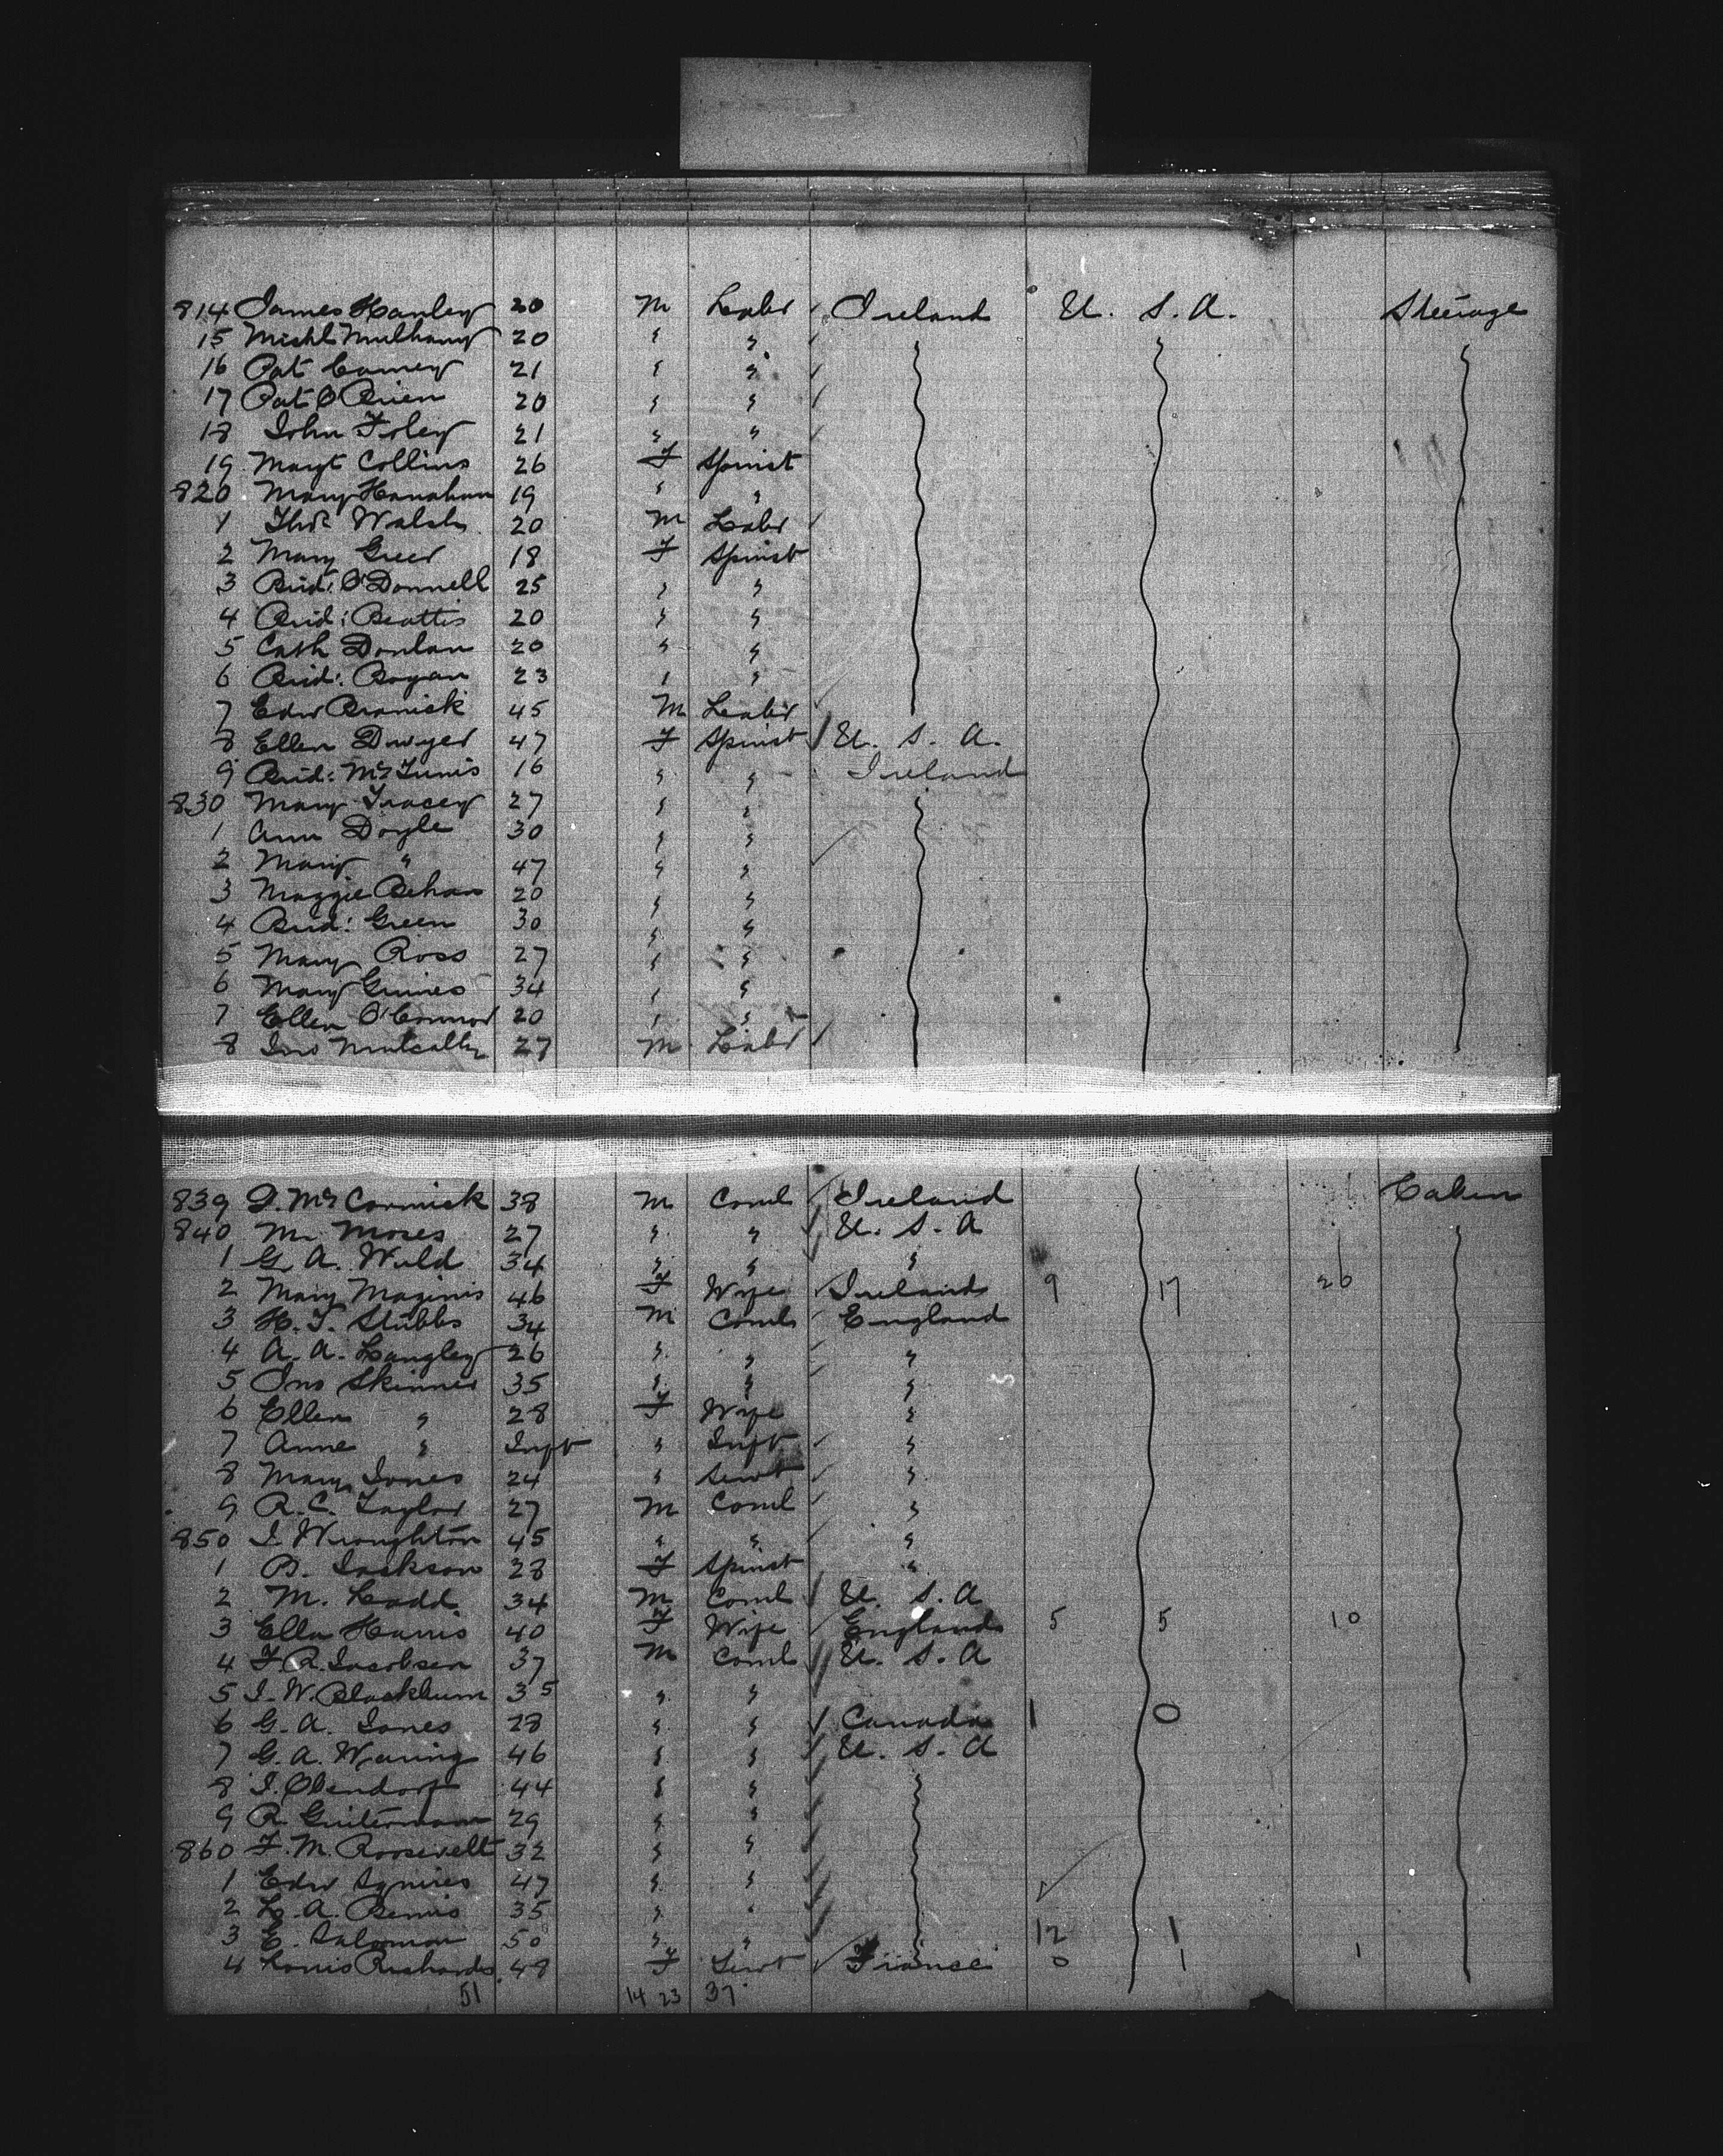 814 James Hanley 20 M Labr Ireland U. S. A. Steerage
15 Michl Mulhany 20 " "
16 Pat Carney 21 " "
17 Pat O'Brien 20 " "
18 John Foley 21 " "
19 Margt Collins 26 F Spinst
820 Mary Hanahan 19 " "
1 Thos Walsh 20 M Labr
2 Mary Greer 18 F Spinst
3 Brid: O'Donnell 25 " "
4 Brid: Beattis 20 " "
5 Cath Donlan 20 " "
6 Brid: Bogan 23 " "
7 Edw Branick 45 M Labr
8 Ellen Dwyer 47 F Spinst U. S. A.
9 Brid: McGinnis 16 " " Ireland
830 Mary Tracey 27 " "
1 Ann Doyle 30 " "
2 Mary " 47 " "
3 Maggie Behan 20 " "
4 Brid: Green 30 " "
5 Mary Ross 27 " "
6 Mary Grimes 34 " "
7 Ellen O'Connor 20 " "
8 Jno Mulcally 27 M Labr
839 D. McCormick 38 M Coml Ireland Cabin
840 M. Moses 27 " " U. S. A
1 G. A. Wild 34 " " "
2 Mary Maginis 46 F Wife Ireland 9 17 26
3 H. T. Stubbs 34 M Coml England
4 A. A. Langley 26 " " "
5 Jno Skinner 35 " " "
6 Ellen " 28 F Wife "
7 Anne " Inft " Inft "
8 Mary Jones 24 " Servt "
9 R. C. Taylor 27 M Coml "
850 J. Wroughton 45 " " "
1 B. Jackson 28 F Spinst "
2 M. Ladd 34 M Coml U. S. A
3 Ella Harris 40 F Wife England 5 5 10
4 F. R. Jacobsen 37 M Coml U. S. A
5 J. W. Blackburn 35 " "
6 G. A. Jones 28 " " Canada 1 0
7 G. A. Waring 46 " " U. S. A
8 J. Obendorf 44 " "
9 R. Guiterman 29 " "
860 F. M. Roosevelt 32 " "
1 Edw Squires 47 " "
2 L. A. Bemis 35 " "
3 E. Salomon 50 " " 12 1
4 Louis Richards 48 F Servt France 0 1 1
51 14 23 37